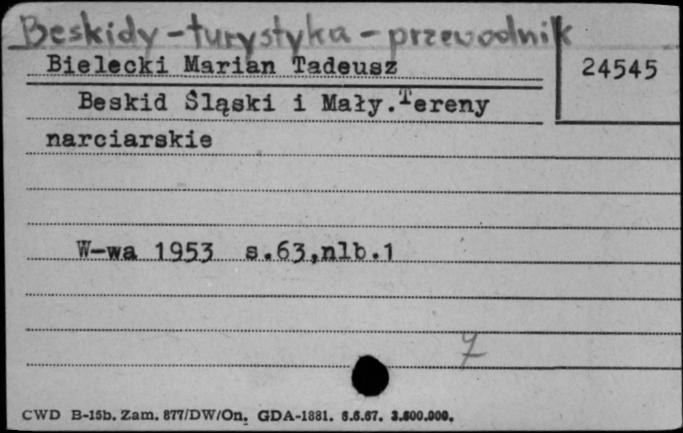 Beskidy - turystyka - przewodnik
Bielecki Marian Tadeusz
24545
Beskid Śląski i Mały. Tereny
narciarskie
W-wa 1953 s.63,nlb.1
7
CWD B-15b. Zam. 877/DW/On. GDA-1881. 6.6.67. 3.600.000.